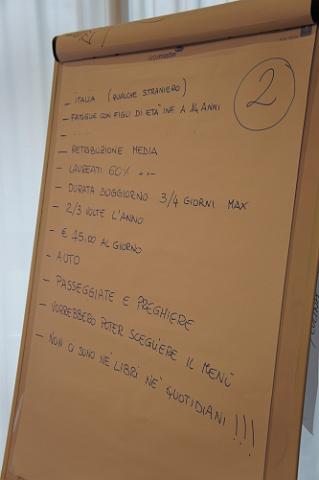 2
- ITALIA (QUALCHE STRANIERO)
- FAMIGLIE CON FIGLI DI ETÀ INF. A 14 ANNI
- .....
- RETRIBUZIONE MEDIA
- LAUREATI 60%
- DURATA SOGGIORNO 3/4 GIORNI MAX
- 2/3 VOLTE L'ANNO
- € 45.00 AL GIORNO
- AUTO
- PASSEGGIATE E PREGHIERE
- VORREBBERO POTER SCEGLIERE IL MENÙ
- NON CI SONO NÈ LIBRI NÈ QUOTIDIANI!!!